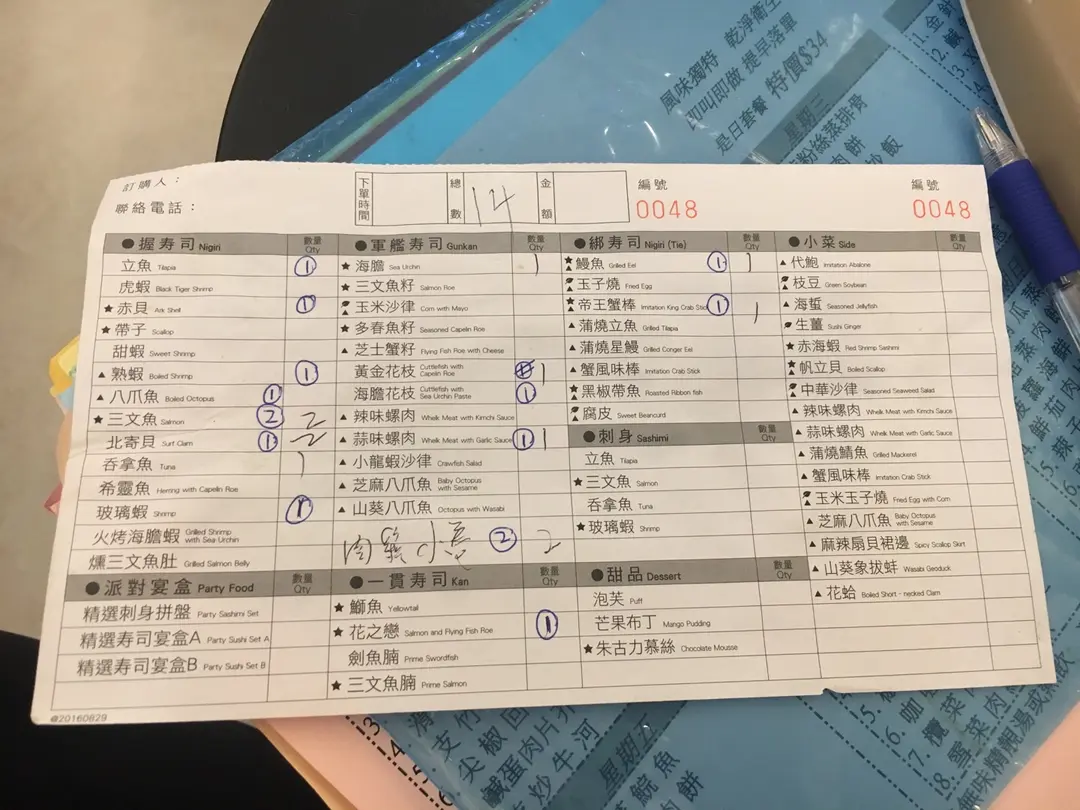 訂購人：
聯絡電話：
下單時間 總數 14 金額
編號 0048
編號 0048
●握寿司 Nigiri 數量 Qty
立魚 Tilapia ①
虎蝦 Black Tiger Shrimp
★赤貝 Ark Shell ①
★帶子 Scallop
甜蝦 Sweet Shrimp
▲熟蝦 Boiled Shrimp ①
▲八爪魚 Boiled Octopus ①
★三文魚 Salmon ② 2
北寄貝 Surf Clam ① 2
吞拿魚 Tuna 1
希靈魚 Herring with Capelin Roe
玻璃蝦 Shrimp ①
火烤海膽蝦 Grilled Shrimp with Sea Urchin
燻三文魚肚 Grilled Salmon Belly
●派對宴盒 Party Food 數量 Qty
精選刺身拼盤 Party Sashimi Set
精選寿司宴盒A Party Sushi Set A
精選寿司宴盒B Party Sushi Set B
@20160829
●軍艦寿司 Gunkan 數量 Qty
★海膽 Sea Urchin 1
★三文魚籽 Salmon Roe
玉米沙律 Corn with Mayo
★多春魚籽 Seasoned Capelin Roe
▲芝士蟹籽 Flying Fish Roe with Cheese
黃金花枝 Cuttlefish with Capelin Roe 1
海膽花枝 Cuttlefish with Sea Urchin Paste ①
▲辣味螺肉 Whelk Meat with Kimchi Sauce
▲蒜味螺肉 Whelk Meat with Garlic Sauce ① 1
▲小龍蝦沙律 Crawfish Salad
▲芝麻八爪魚 Baby Octopus with Sesame
▲山葵八爪魚 Octopus with Wasabi
② 2
●一貫寿司 Kan 數量 Qty
★鰤魚 Yellowtail
★花之戀 Salmon and Flying Fish Roe ①
劍魚腩 Prime Swordfish
★三文魚腩 Prime Salmon
●綁寿司 Nigiri (Tie) 數量 Qty
★▲鰻魚 Grilled Eel ① 1
玉子燒 Fried Egg
★▲帝王蟹棒 Imitation King Crab Stick ① 1
▲蒲燒立魚 Grilled Tilapia
▲蒲燒星鰻 Grilled Conger Eel
▲蟹風味棒 Imitation Crab Stick
★▲黑椒帶魚 Roasted Ribbon fish
腐皮 Sweet Beancurd
●刺身 Sashimi 數量 Qty
立魚 Tilapia
★三文魚 Salmon
吞拿魚 Tuna
★玻璃蝦 Shrimp
●甜品 Dessert 數量 Qty
泡芙 Puff
芒果布丁 Mango Pudding
★朱古力慕絲 Chocolate Mousse
●小菜 Side 數量 Qty
▲代鮑 Imitation Abalone
枝豆 Green Soybean
▲海蜇 Seasoned Jellyfish
生薑 Sushi Ginger
★赤海蝦 Red Shrimp Sashimi
★▲帆立貝 Boiled Scallop
中華沙律 Seasoned Seaweed Salad
▲辣味螺肉 Whelk Meat with Kimchi Sauce
▲蒜味螺肉 Whelk Meat with Garlic Sauce
▲蒲燒鯖魚 Grilled Mackerel
▲蟹風味棒 Imitation Crab Stick
玉米玉子燒 Fried Egg with Corn
▲芝麻八爪魚 Baby Octopus with Sesame
▲麻辣扇貝裙邊 Spicy Scallop Skirt
▲山葵象拔蚌 Wasabi Geoduck
▲花蛤 Boiled Short-necked Clam
風味獨特 乾淨衛生
即叫即做 提早落單
是日套餐 特價$34
星期三
粉絲蒸排骨
肉餅
炒飯
星期五
椒
鹹蛋肉片
炒牛河
鯇魚
肉餅